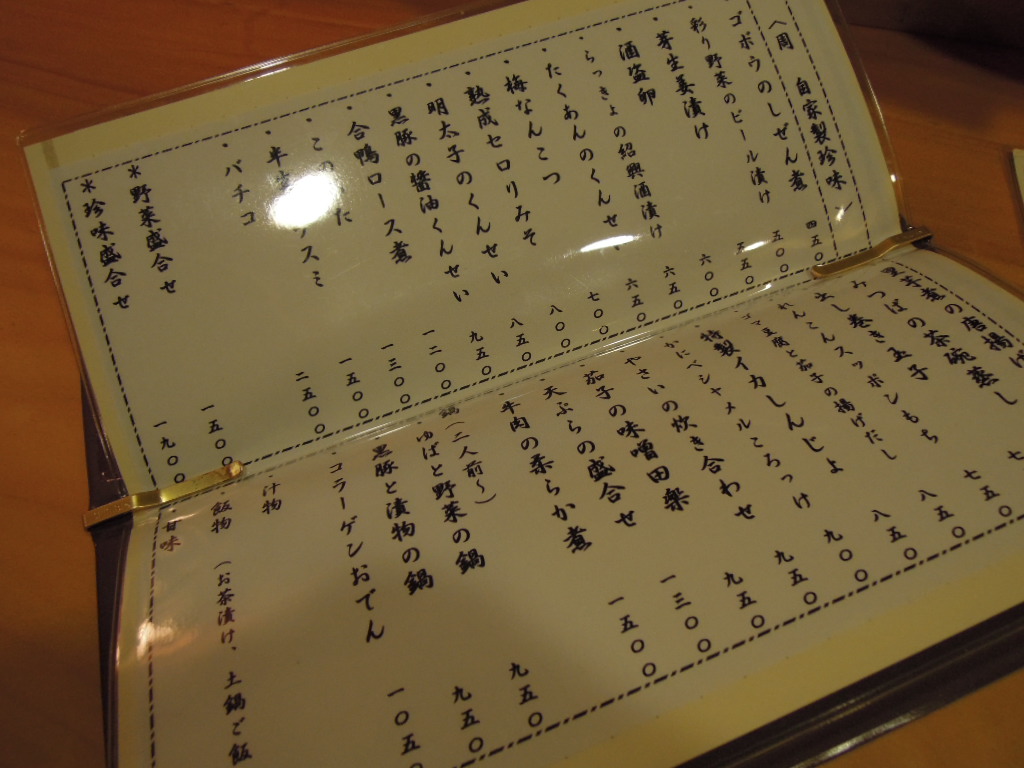 〈周 自家製珍味〉
ゴボウのしぜん煮 四五〇
・彩り野菜のビール漬け 五〇〇
・芽生姜漬け 五五〇
・酒盗卵 六〇〇
・らっきょの紹興酒漬け 六五〇
・たくあんのくんせい 六五〇
・梅なんこつ 七〇〇
・熟成セロリみそ 八〇〇
・明太子のくんせい 八五〇
・黒豚の醬油くんせい 九五〇
・合鴨ロース煮 一二〇〇
・このわた 一三〇〇
・半生 スミ 一五〇〇
・バチコ 二五〇〇
*野菜盛合せ 一五〇
*珍味盛合せ 一九〇〇
の唐揚げ
みつばの茶碗蒸し 七五〇
出し巻き玉子 七五〇
れんこんスッポンもち 八五〇
ゴマ豆腐と茄子の揚げだし 八五〇
特製イカしんじょ 九〇〇
・かにベシャメルころっけ 九五〇
・やさいの炊き合わせ 九五〇
・茄子の味噌田楽
・天ぷらの盛合せ 一三〇〇
・牛肉の柔らか煮 一五〇〇
鍋(二人前〜)
ゆばと野菜の鍋 九五〇
黒豚と漬物の鍋 九五〇
・コラーゲンおでん 一〇五
・汁物
・飯物 (お茶漬け、土鍋ご飯
・甘味